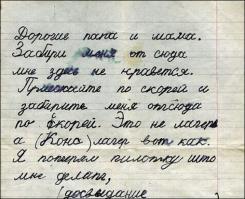 Дорогие папа и мама.
Забири меня от сюда
мне здесь не нравется.
Приежайте по скорей и
заберите меня отсюда
по скорей. Это не лагерь
а (Конс) лагер вот как.
Я потерям пилотку што
мне делать,
(досвидание